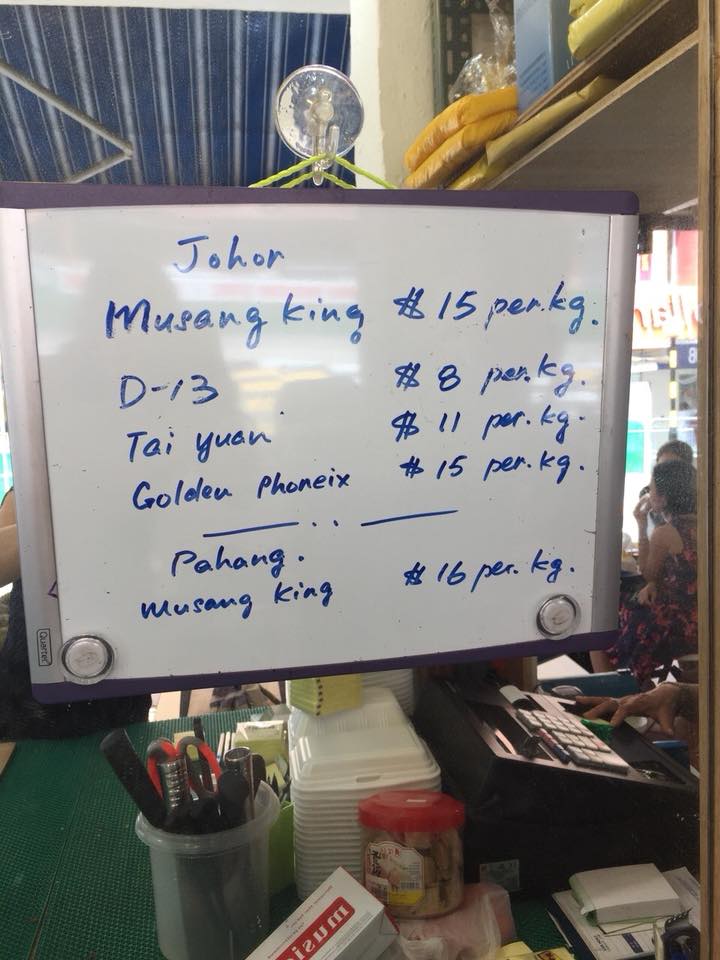 Johor
Musang king $ 15 per.kg.
D-13 $ 8 per.kg.
Tai yuan $ 11 per.kg.
Golden Phoneix $ 15 per.kg.
Pahang.
Musang king $ 16 per.kg.
Quartet
musi
8